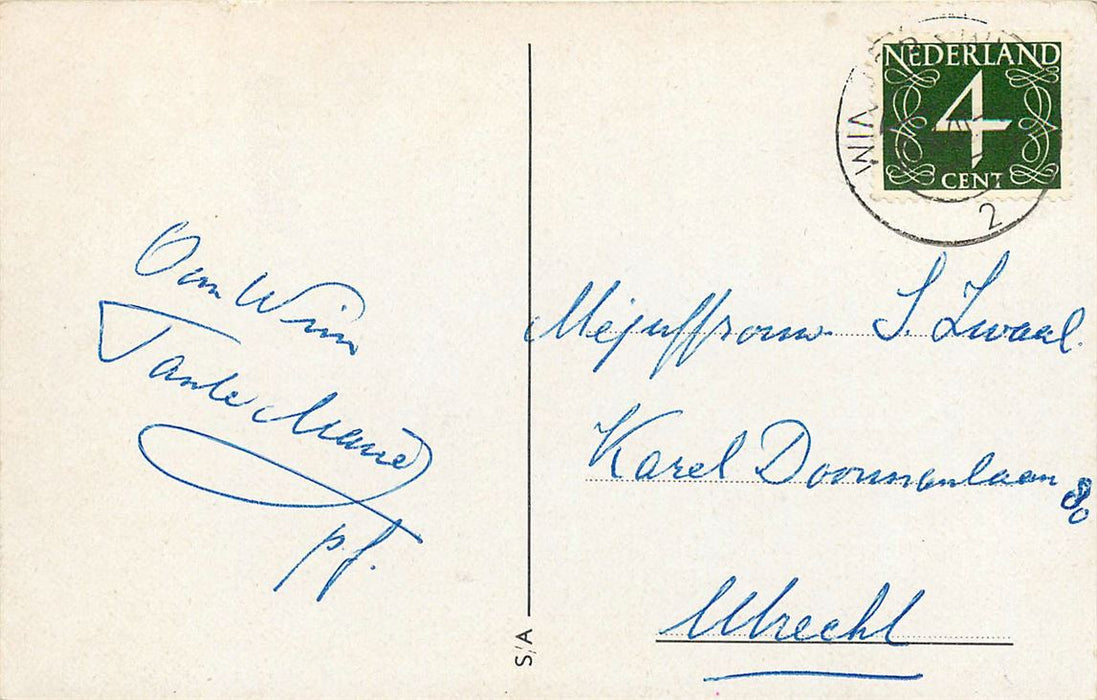 Oom Wim
Tante Marie
p.f.
S/A
NEDERLAND
4
CENT
2
Mejuffrouw S. Zwaal.
Karel Doormanlaan 80
Utrecht